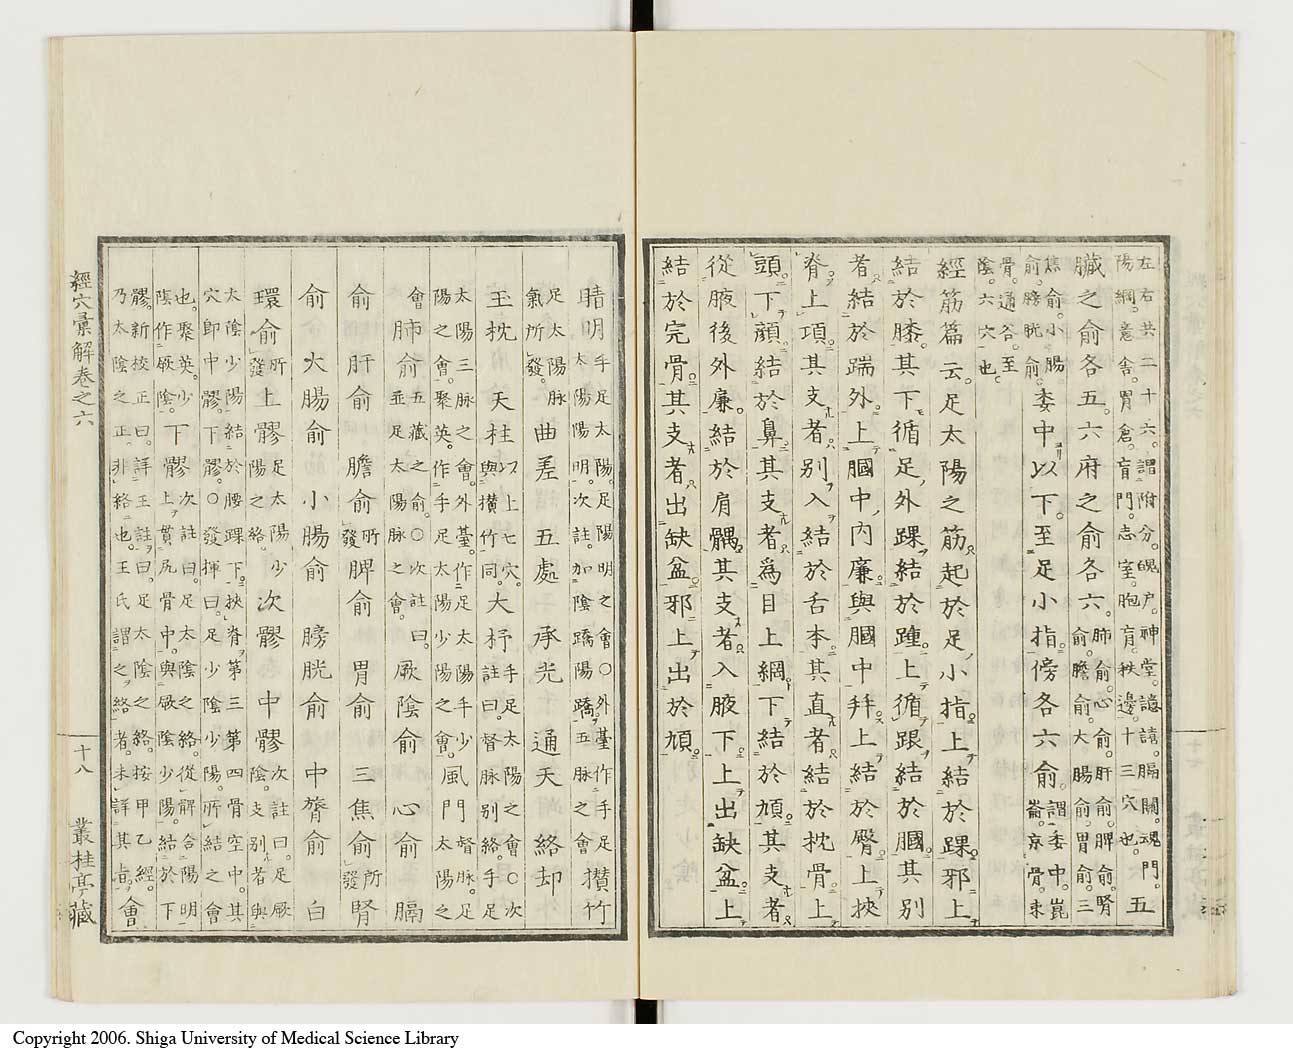 左右共二十六。謂附分。魄戶。神堂。譩譆。膈關。魂門。
陽綱。意舍。胃倉。肓門。志室。胞肓。秩邊。十三穴也。五
臟之俞各五。六府之俞各六。肺俞。心俞。肝俞。脾俞。腎
俞。膽俞。大腸俞。胃俞。三
焦俞。小腸
俞。膀胱俞。委中以下。至足小指傍各六俞。謂委中。崑
崙。京骨。束
骨。通谷。至
陰。六穴也。
經筋篇云。足太陽之筋。起於足小指。上結於踝。邪上
結於膝。其下循足外踝。結於踵。上循跟。結於膕。其別
者。結於踹外。上膕中內廉。與膕中拜。上結於臀。上挾
脊上項。其支者。別入結於舌本。其直者。結於枕骨。上
頭。下顔。結於鼻。其支者。為目上綱。下結於頄。其支者。
從腋後外廉。結於肩髃。其支者。入腋下。上出缺盆。上
結於完骨。其支者。出缺盆。邪上出於頄。
睛明手足太陽。足陽明之會〇外臺作手足
太陽陽明。次註加陰蹻陽蹻。五脈之會攅竹
足太陽脈
氣所發。曲差五處承光通天絡却
玉枕天柱以上七穴。
與攅竹同。大杼手足太陽之會〇次
註曰。督脈別絡。手足
太陽三脈之會。外臺。作足太陽手少
陽之會。聚英。作手足太陽少陽之會。風門督脈。足
太陽之
會肺俞五藏之俞。〇次註曰。
並足太陽脈之會。厥陰俞心俞膈
俞肝俞膽俞所
發脾俞胃俞三焦俞所
發腎
俞大腸俞小腸俞膀胱俞中膂俞白
環俞所
發上髎足太陽少
陽之絡次髎中髎次註曰。足厥
陰。支別者。與
太陰少陽結於腰踝下。挾脊第三第四骨空中。其
穴即中髎。下髎。〇發揮曰。足少陰少陽。所結之會
也。聚英。少
陰作厥陰。下髎次註曰。足太陰之絡。從髀合陽明
上貫尻骨中。與厥陰少陽。結於下
髎。新校正曰。詳王註曰。足太陰之絡。按甲乙經。
乃太陰之正。非絡也。王氏謂之絡者。未詳其旨。會
經穴彙解卷之六
十八
叢桂亭藏
Copyright 2006. Shiga University of Medical Science Library